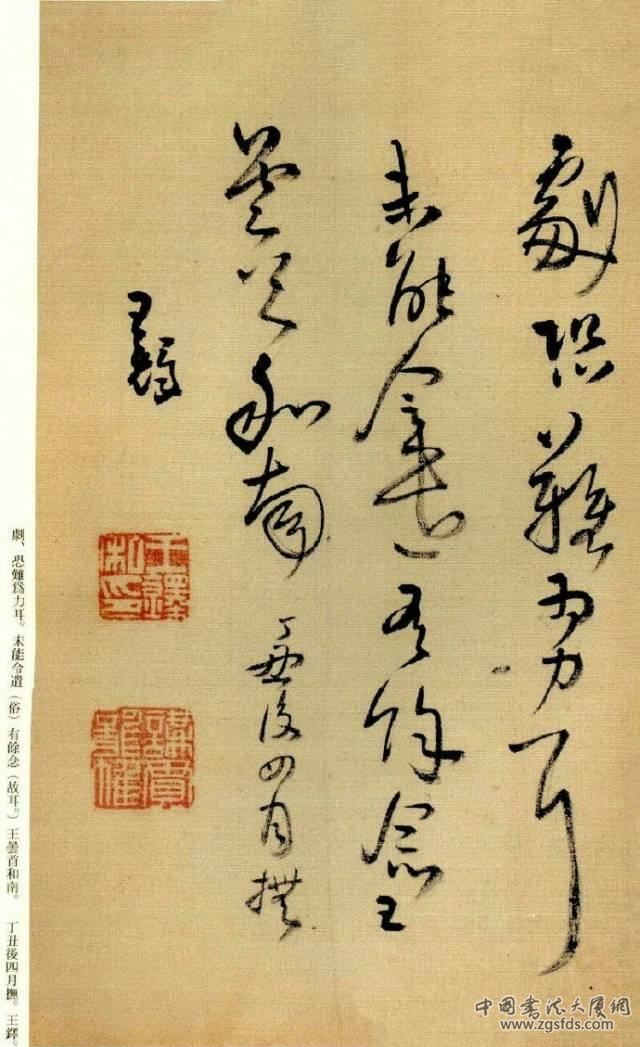 劇恐難為力耳
未能令遣有餘念王
曇首和南
丁丑後四月撫
王鐸
王鐸私印
劇、恐難爲力耳。未能令遣（俗）有餘念（故耳。）王曇首和南。　丁丑後四月撫。王鐸。
中国书法大厦網
www.zgsfds.com